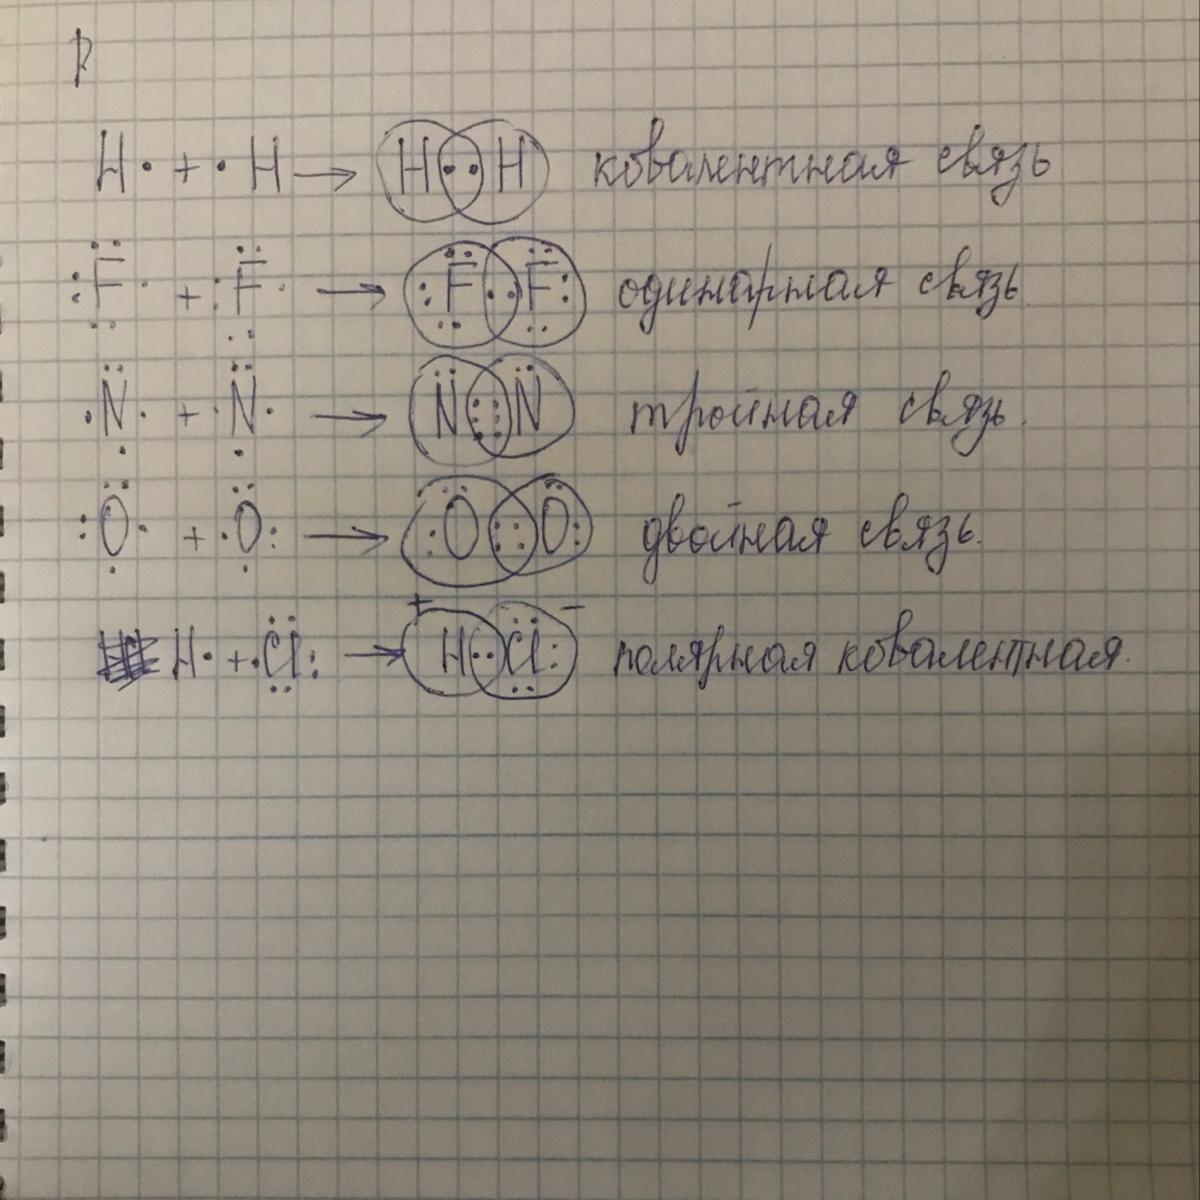 H· + ·H → H··H ковалентная связь
:F· + :F· → :F··F: одинарная связь.
·N· + ·N· → N::: N тройная связь.
:O· + ·O: → :O::O: двойная связь.
H· + ·Cl: → + H··Cl: − полярная ковалентная.